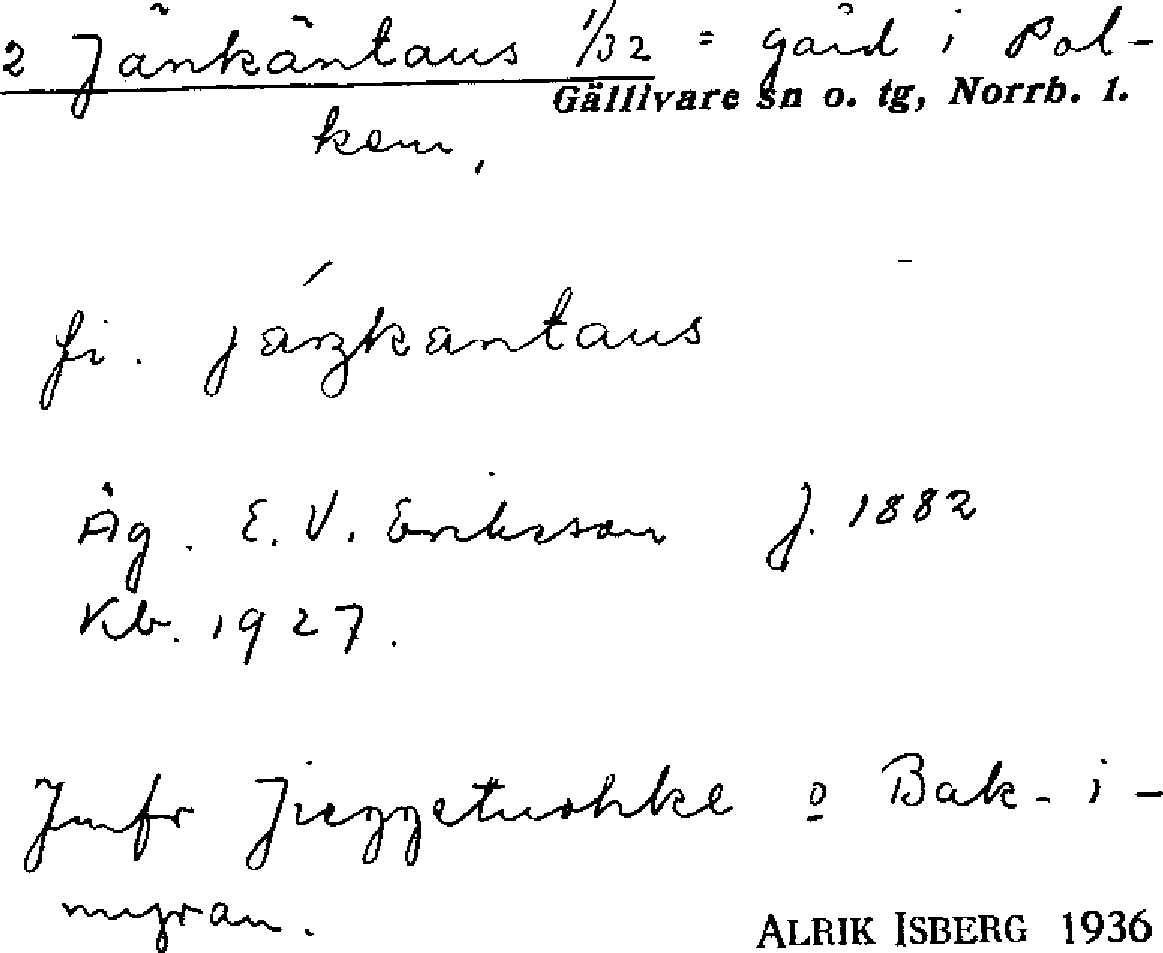 2 Jänkäntaus 1/32 = gård i Pol-
Gällivare sn o. tg, Norrb. l.
kem.
fi. jáŋkantaus
Äg. E. V. Eriksson f. 1882
Kb. 1927.
Jmfr Jieggetuohke o Bak-i-
myran.
ALRIK ISBERG 1936